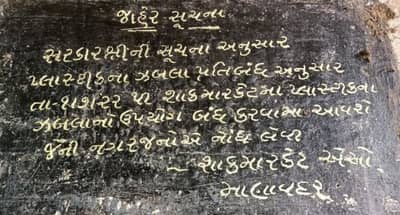 જાહેર સૂચના
સરકારશ્રીની સૂચના અનુસાર
પ્લાસ્ટીકના ઝબલા પ્રતિબંધ અનુસાર
તા-૧૫૬૨૨ થી શાકમારકેટમાં પ્લાસ્ટીકના
ઝબલાનો ઉપયોગ બંધ કરવામાં આવશે
જેની નગરજનોએ નોંધ લેવી
- શાકમારકેટ એસો.
માણાવદર